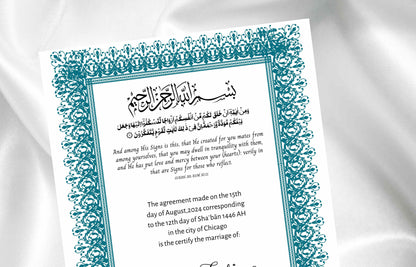 بسم الله الرحمن الرحيم
ومن آياته أن خلق لكم من أنفسكم أزواجا لتسكنوا إليها وجعل
بينكم مودة ورحمة إن في ذلك لآيات لقوم يتفكرون
And among His Signs is this, that He created for you mates from
among yourselves, that you may dwell in tranquility with them,
and He has put love and mercy between your (hearts): verily in
that are Signs for those who reflect.
The agreement made on the 15th
day of August,2024 corresponding
to the 12th day of Sha'bān 1446 AH
in the city of Chicago
is the certify the marriage of: